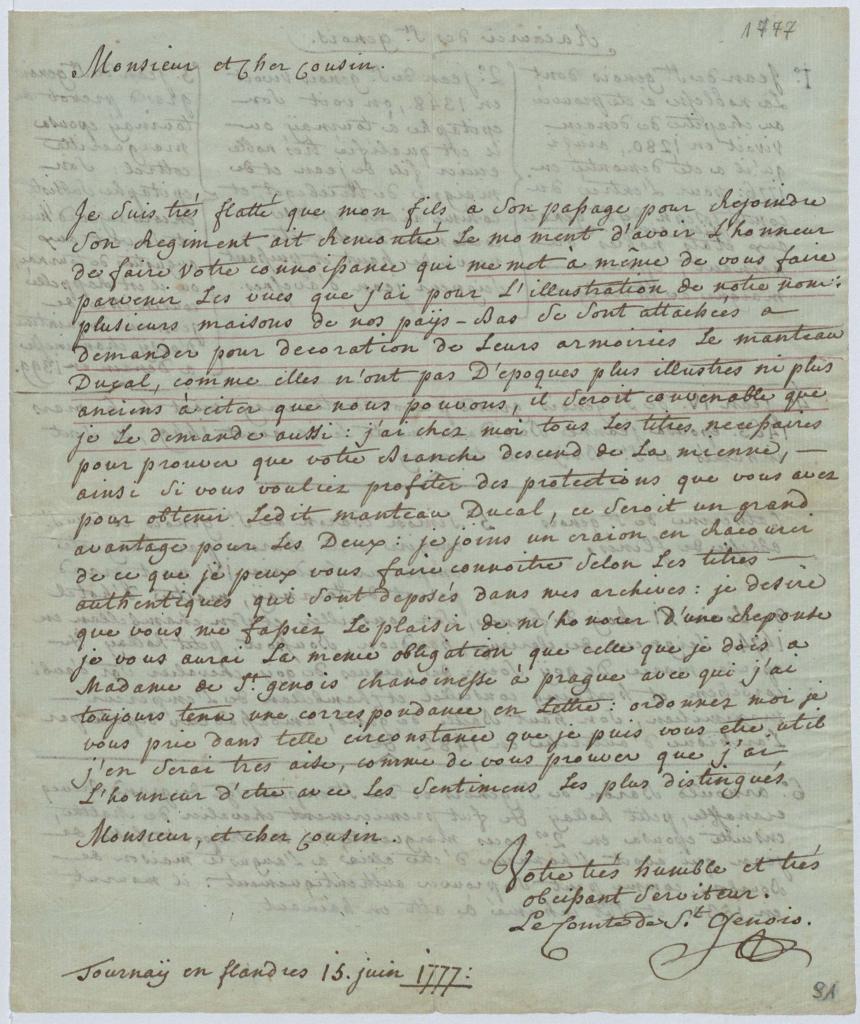 1777
Monsieur et Cher Cousin.
Je suis trés flatté que mon fils a son passage pour Rejoindre
son Regiment ait Rencontré Le moment d'avoir L'honneur
de faire votre connoissance qui me met à même de vous faire
parvenir Les vues que j'ai pour L'illustration de notre nom:
plusieurs maisons de nos paÿs-Bas se sont attachées a
demander pour decoration de Leurs armoiries Le manteau
Ducal, comme elles n'ont pas D'epoques plus illustres ni plus
anciens à citer que nous pouvons, il seroit convenable que
je Le demande aussi: j'ai chez moi tous Les titres necessaires
pour prouver que votre Branche descend de La mienne, —
ainsi si vous vouliez profiter des protections que vous avez
pour obtenir Ledit manteau Ducal, ce seroit un grand
avantage pour Les Deux: je joins un craion en Racourci
de ce que je peux vous faire connoitre selon Les titres —
authentiques qui sont deposés dans mes archives: je desire
que vous me fassiez Le plaisir de m'honorer d'une Reponse
je vous aurai La meme obligation que celle que je dois a
Madame de St. genois chanoinesse à prague avec qui j'ai
toujours tenu une correspondance en Lettre: ordonnez moi je
vous prie dans telle circonstance que je puis vous etre util
j'en serai tres aise, comme de vous prouver que j'ai
L'honneur d'etre avec Les sentimens Les plus distingués
Monsieur, et cher Cousin.
Votre trés humble et trés
obeissant serviteur.
Le Comte de St. Genois.
Tournaÿ en flandres 15. juin 1777:
91